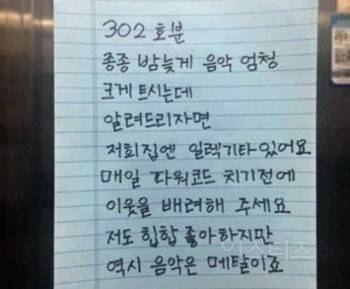 302 호분
종종 밤늦게 음악 엄청
크게 트시는데
알려드리자면
저희집엔 일렉기타있어요
매일 파워코드 치기전에
이웃을 배려해 주세요
저도 힙합 좋아하지만
역시 음악은 메탈이죠